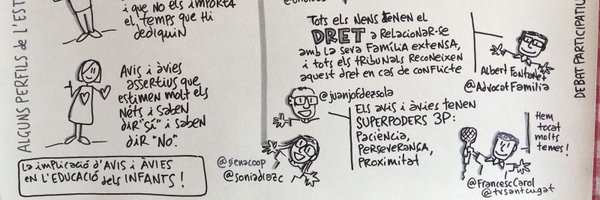 ALGUNS PERFILS de L'EST
i que no els importa
el temps que hi
dediquin
AVIS i ÀVIES
ASSERTIUS que
estimen molt els
Néts i saben
dir "sí" i saben
dir "No".
La implicació d'AVIS i ÀVIES
EN L'EDUCACIÓ dels INFANTS!
Tots els nens tenen el
DRET a Relacionar-se
amb la seva Família extensa,
i tots els tribunals reconeixen
aquest dret en cas de conflicte
Albert Fontanet
@AdvocatFamilia
@juanjofdezsola
Els avis i àvies tenen
SUPERPODERS 3P:
Paciència,
Perseverança,
Proximitat
@genacoop
@soniadiazc
Hem
tocat
molts
temes!
@FrancescCarol
@tvsantcugat
DEBAT PARTICIPATIU